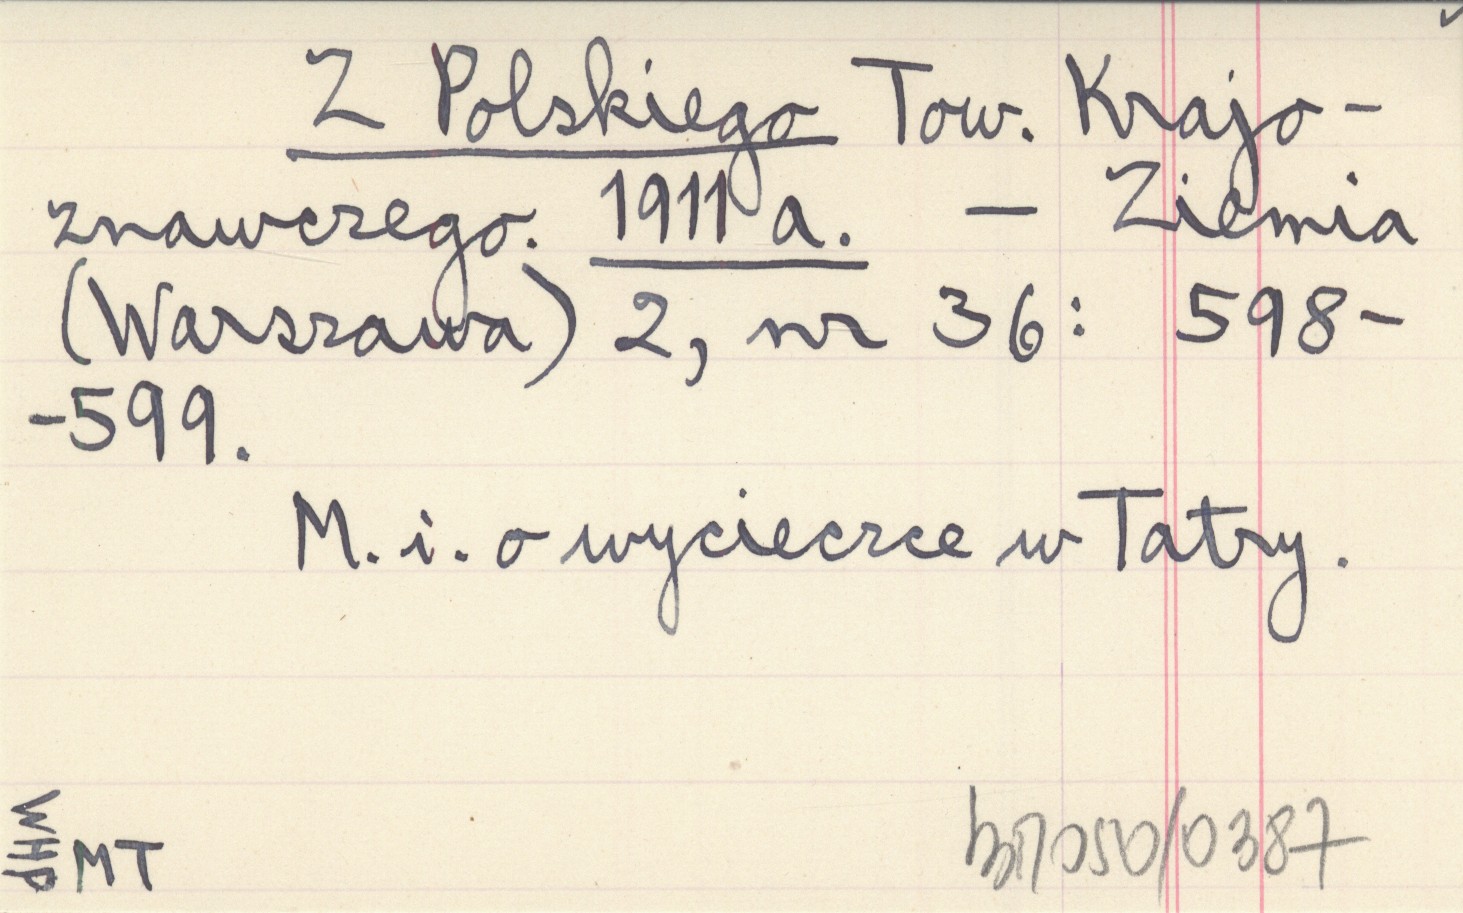 Z Polskiego Tow. Krajo-
znawczego. 1911 a. — Ziemia
(Warszawa) 2, nr 36: 598-
-599.
M. i. o wycieczce w Tatry.
WHP
MT